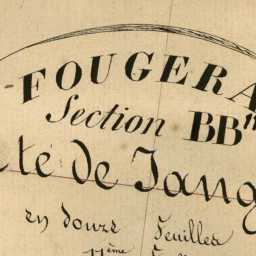 FOUGERA
Section BB
té de Tang
en douze Feuilles
11ème